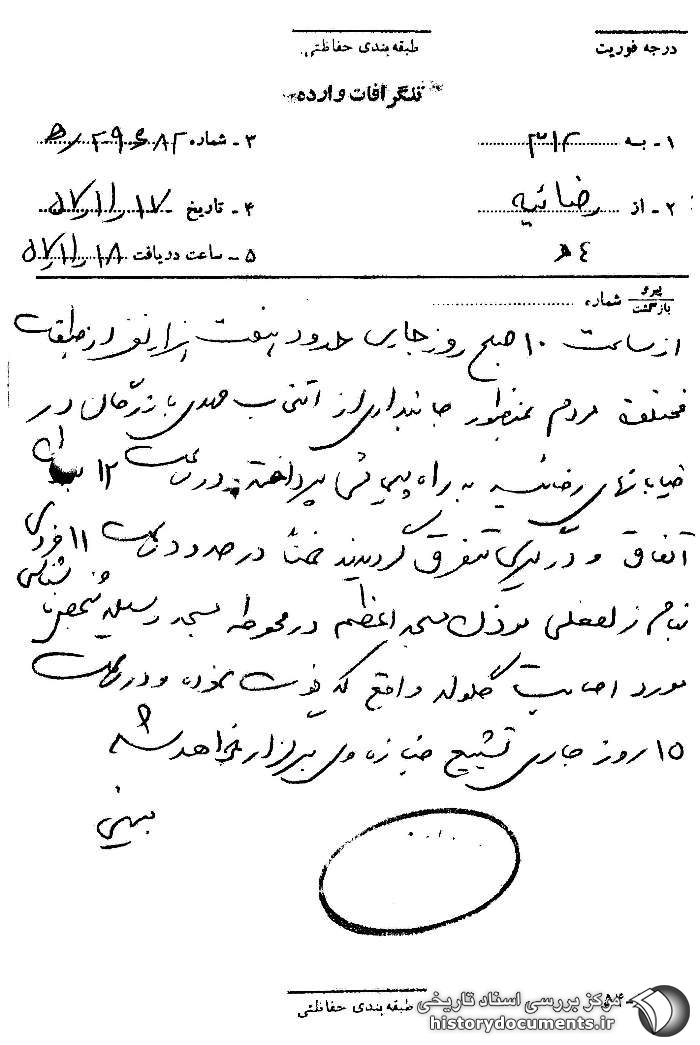 درجه فوریت
طبقه‌بندی حفاظتی
تلگرافات وارده
۱ - به ۳۱۲
۳ - شماره ۲۹۶۸۲ ر ه
۲ - از رضائیه
۴ - تاریخ ۵۷٫۱۱٫۱۷
۴ ه
۵ - ساعت دریافت ۵۷٫۱۱٫۱۸
پیرو
بازگشت
شماره
از ساعت ۱۰ صبح روز جاری حدود هفت هزار نفر از طبقات
مختلف مردم بمنظور جانبداری از انتخاب مهدی بازرگان در
خیابانهای رضائیه به راه پیمائی پرداخته در ساعت ۱۲ بدون
اتفاق و درگیری متفرق گردیدند ضمناً در حدود ساعت ۱۱ فردی
بنام موذن مسجد اعظم در محوطه مسجد وسیله شخص ناشناسی
مورد اصابت گلوله واقع که فوت نموده و در ساعت
۱۵ روز جاری تشییع جنازه وی برگزار خواهد شد
طبقه‌بندی حفاظتی
مرکز بررسی اسناد تاریخی
historydocuments.ir